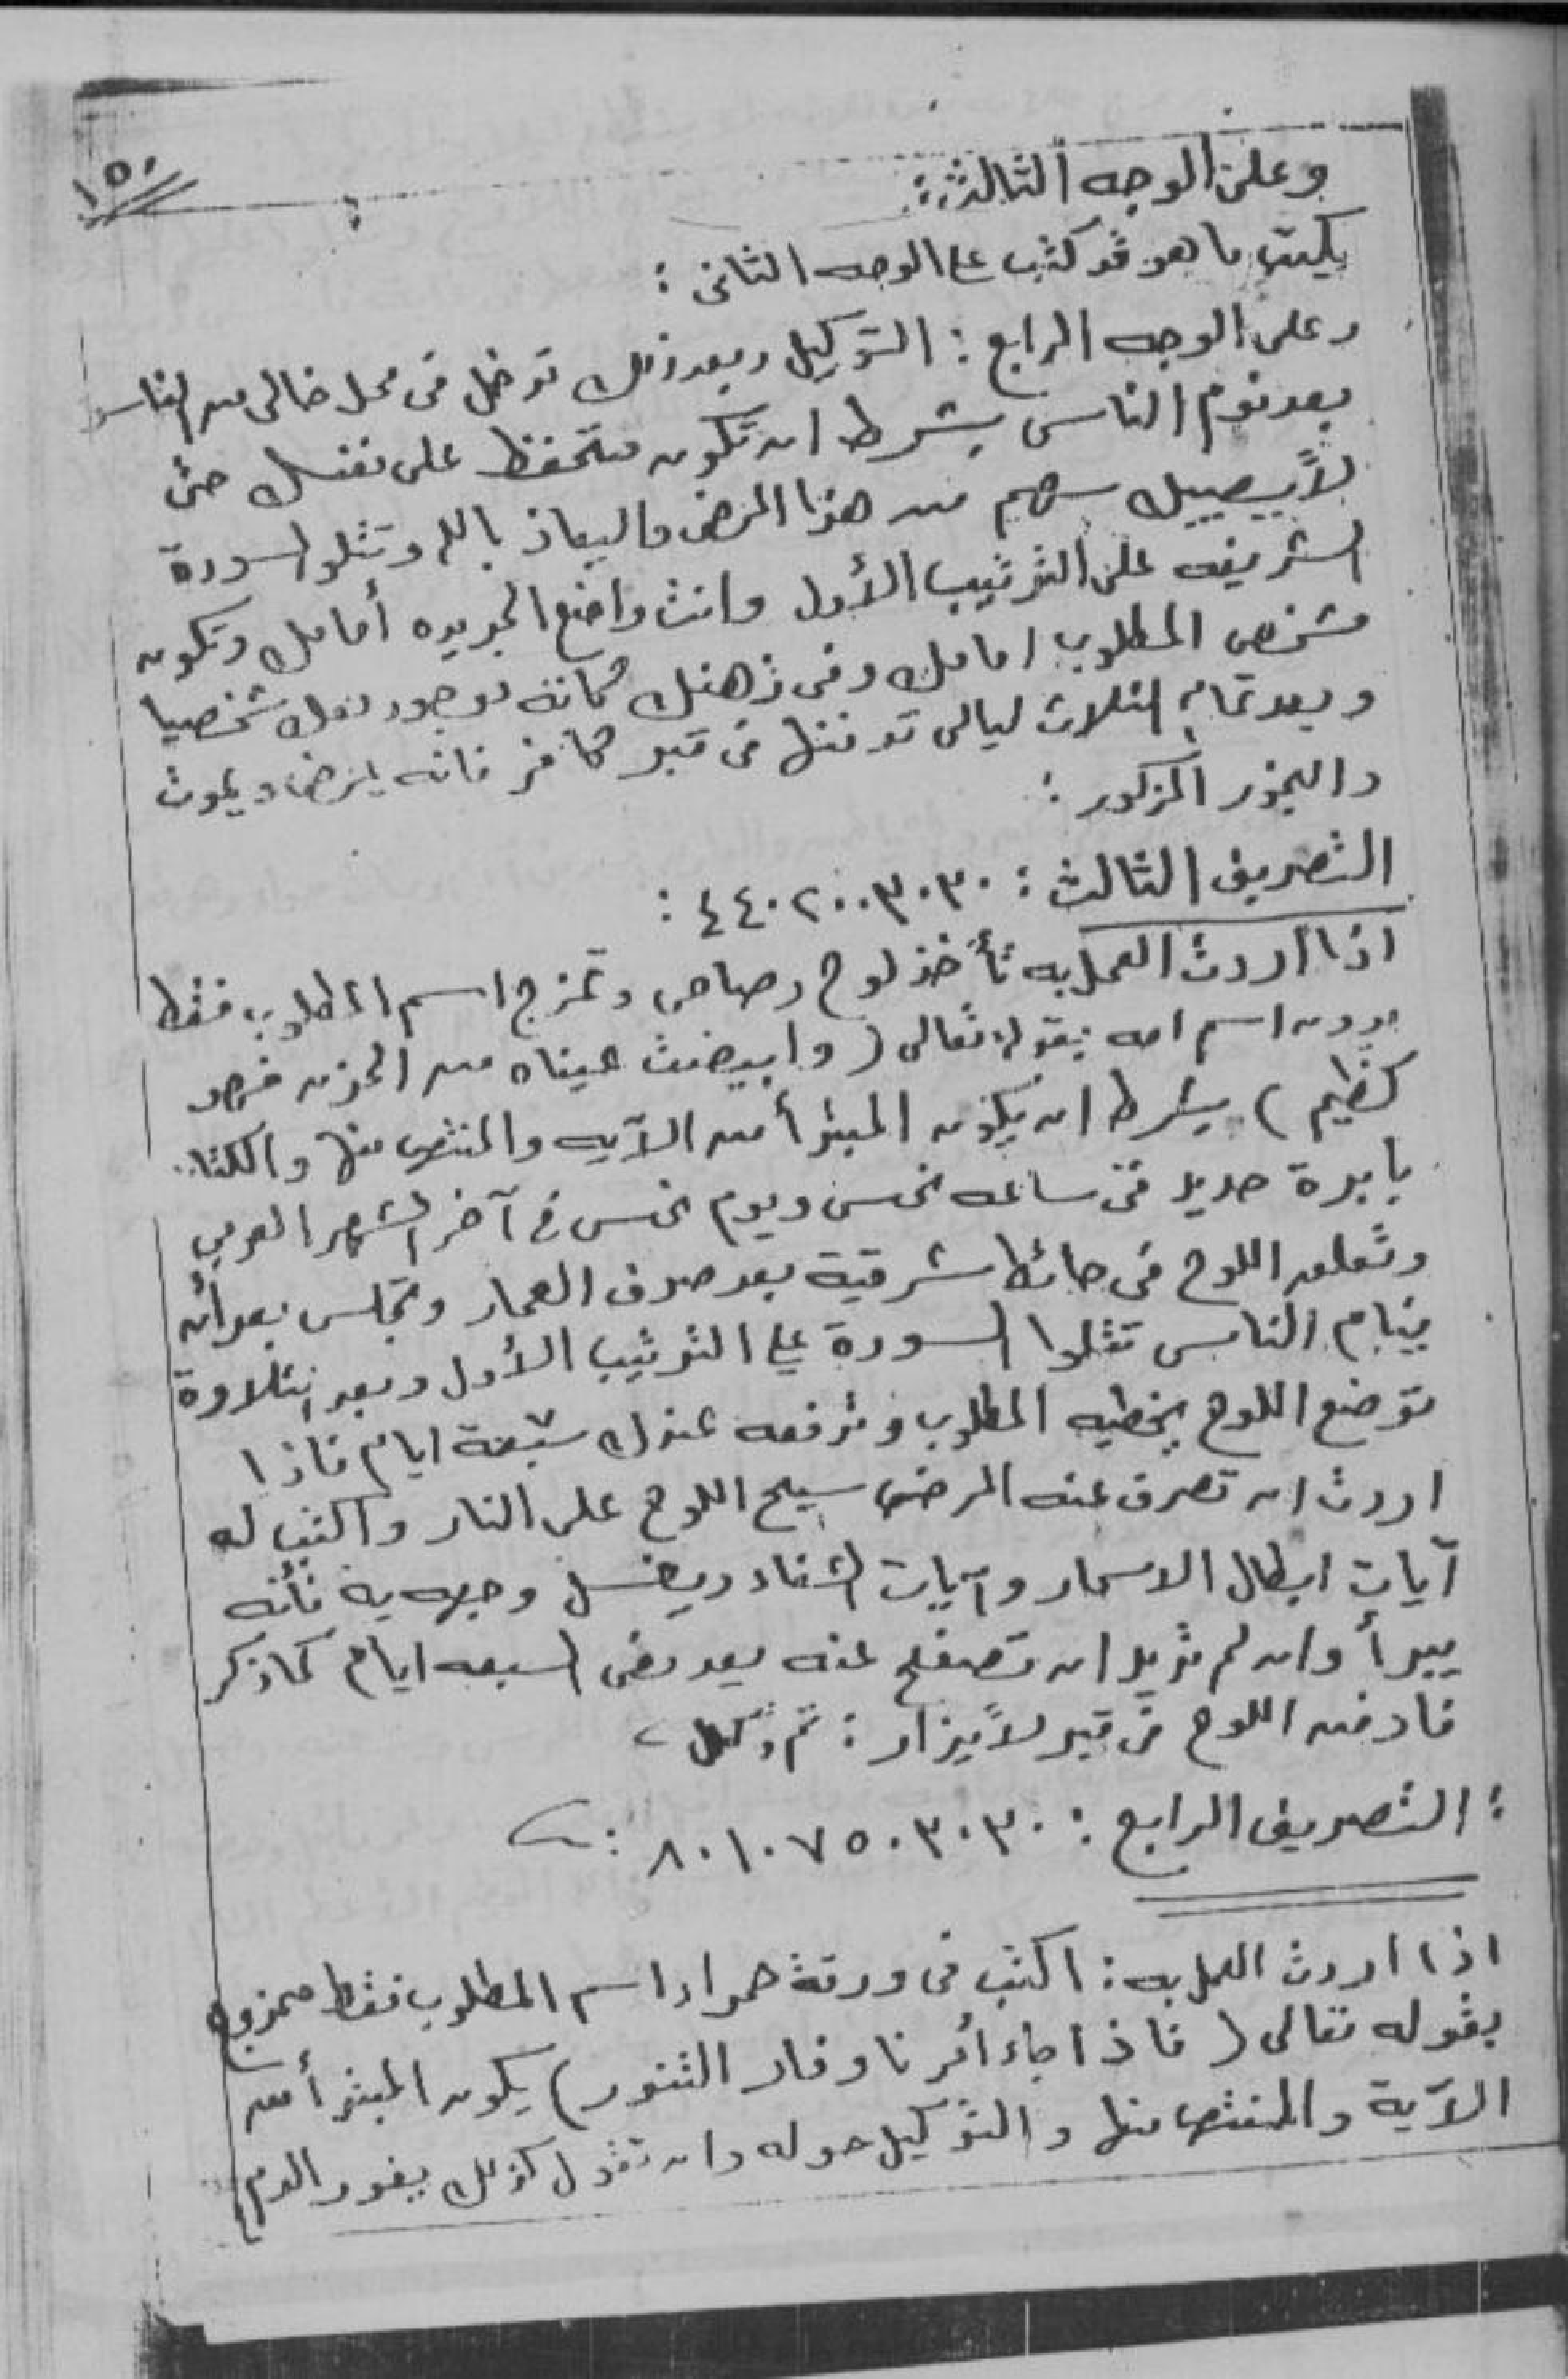 ١٥٠
وعلى الوجه الثالث:
يكتب ما هو قد كتب على الوجه الثانى :
وعلى الوجه الرابع : التوكيل وبعد ذلك تدخل فى محل خالى من الناس
بعد نوم الناس بشرط ان تكون متحفظ على نفسك حتى
لا يصيبك سهم من هذا المرض والعياذ بالله وتتلو السورة
الشريفه على الترتيب الأول وانت واضع الجريده أمامك وتكون
مشخص المطلوب امامك وفى ذهنك كانه موجود معك شخصيا
وبعد تمام الثلاث ليالى تدفنها فى قبر كافر فانه يمرض ويموت
والبخور المذكور :
التصريف الثالث : ٤٤٠٢٠٠٣٠٣٠ :
اذا اردت العمل به تأخذ لوح رصاص وتمزج اسم المطلوب فقط
بدون اسم امه بقوله تعالى ( وابيضت عيناه من الحزن فهو
كظيم ) بشرط ان يكون المبتدأ من الآيه والمنتهى منها والكتابه
بابرة حديد فى ساعه نحس ويوم نحس فى آخر الشهر العربى
وتعلق اللوح فى حائط شرقية بعد صرف العمار وتجلس بعد أن
ينام الناس تتلوا السورة على الترتيب الأول وبعد التلاوة
توضع اللوح بخطيه المطلوب وترفعه عندك سبعة ايام فاذا
اردت ان تصرف عنه المرض سيح اللوح على النار واكتب له
آيات ابطال الاسحار وآيات الشفاء ويغسل وجهه به فأنه
يبرأ وان لم تريد ان تصفح عنه بعد مضى السبعه ايام كما ذكر
فادفن اللوح فى قبر لا يزار : ثم وكل
: التصريف الرابع : ٨٠١٠٧٥٠٣٠٣٠ :
اذا اردت العمل به : اكتب فى ورقة حمراء اسم المطلوب فقط ممزوج
بقوله تعالى ( فاذا جاء أمرنا وفار التنور ) يكون المبتدأ من
الآية والمنتها منها والتوكيل حوله وان تقول كذلك يفور الدم